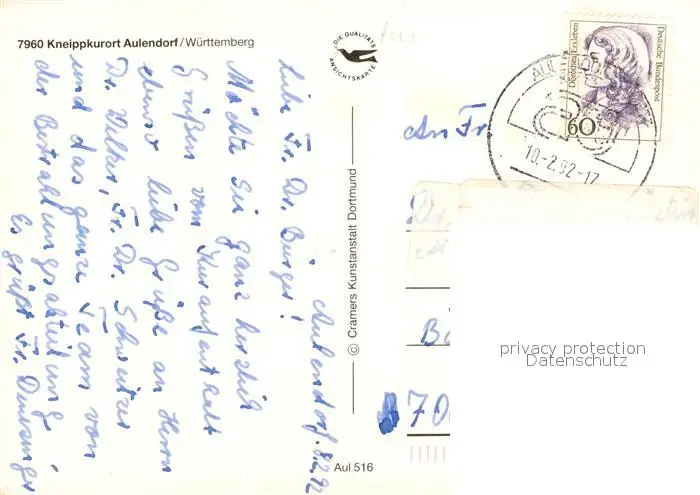 7960 Kneippkurort Aulendorf/Württemberg
DIE QUALITÄTS
ANSICHTSKARTE
Aulendorf. 8.2.92
Liebe Fr. Dr. Bürger!
Möchte Sie ganz herzlich
Grüßen vom Kuraufenthalt
ebenso liebe Grüße an Herrn
Dr. Welker, Fr. Dr. Schweitzer
und das ganze Team von
der Bestrahlungsabteilung
Es grüßt Fr.
© Cramers Kunstanstalt Dortmund
Aul 516
An Fr
Dr.
70
Dorothea Erxleben
Deutsche Bundespost
60
10.-2.92-17
privacy protection
Datenschutz